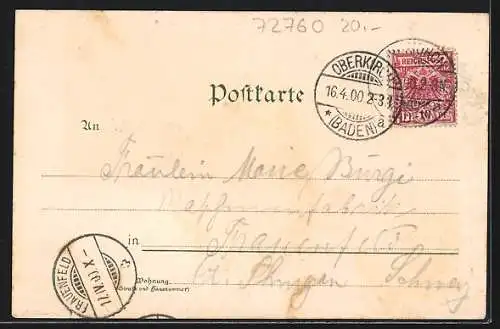 72760 20.-
OBERKIRCH
16.4.00 2-3
* (BADEN) a
REICHSPOST
Postkarte
An
Fräulein Marie Bürgi
in
Frauenfeld
Ct. Thurgau Schweiz
Wohnung
(Straße und Hausnummer)
FRAUENFELD
17.IV.00.X-